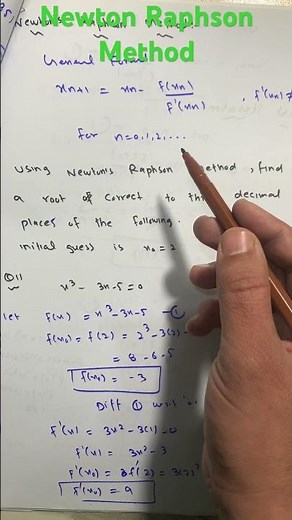 Newton Raphson
Method
General Form
xn+1 = xn - f(xn)/f'(xn) , f'(xn) ≠
for n=0,1,2,...
using Newton's Raphson method, find
a root of correct to decimal
places of the following.
initial guess is x0 = 2
Q11
x³ - 3x - 5 = 0
let f(x) = x³ - 3x - 5 - ①
f(x0) = f(2) = 2³ - 3(2) -
= 8 - 6 - 5
f(x0) = -3
Diff ① w.r.t
f'(x) = 3x² - 3(1) - 0
f'(x) = 3x² - 3
f'(x0) = f'(2) = 3(2)²
f'(x0) = 9